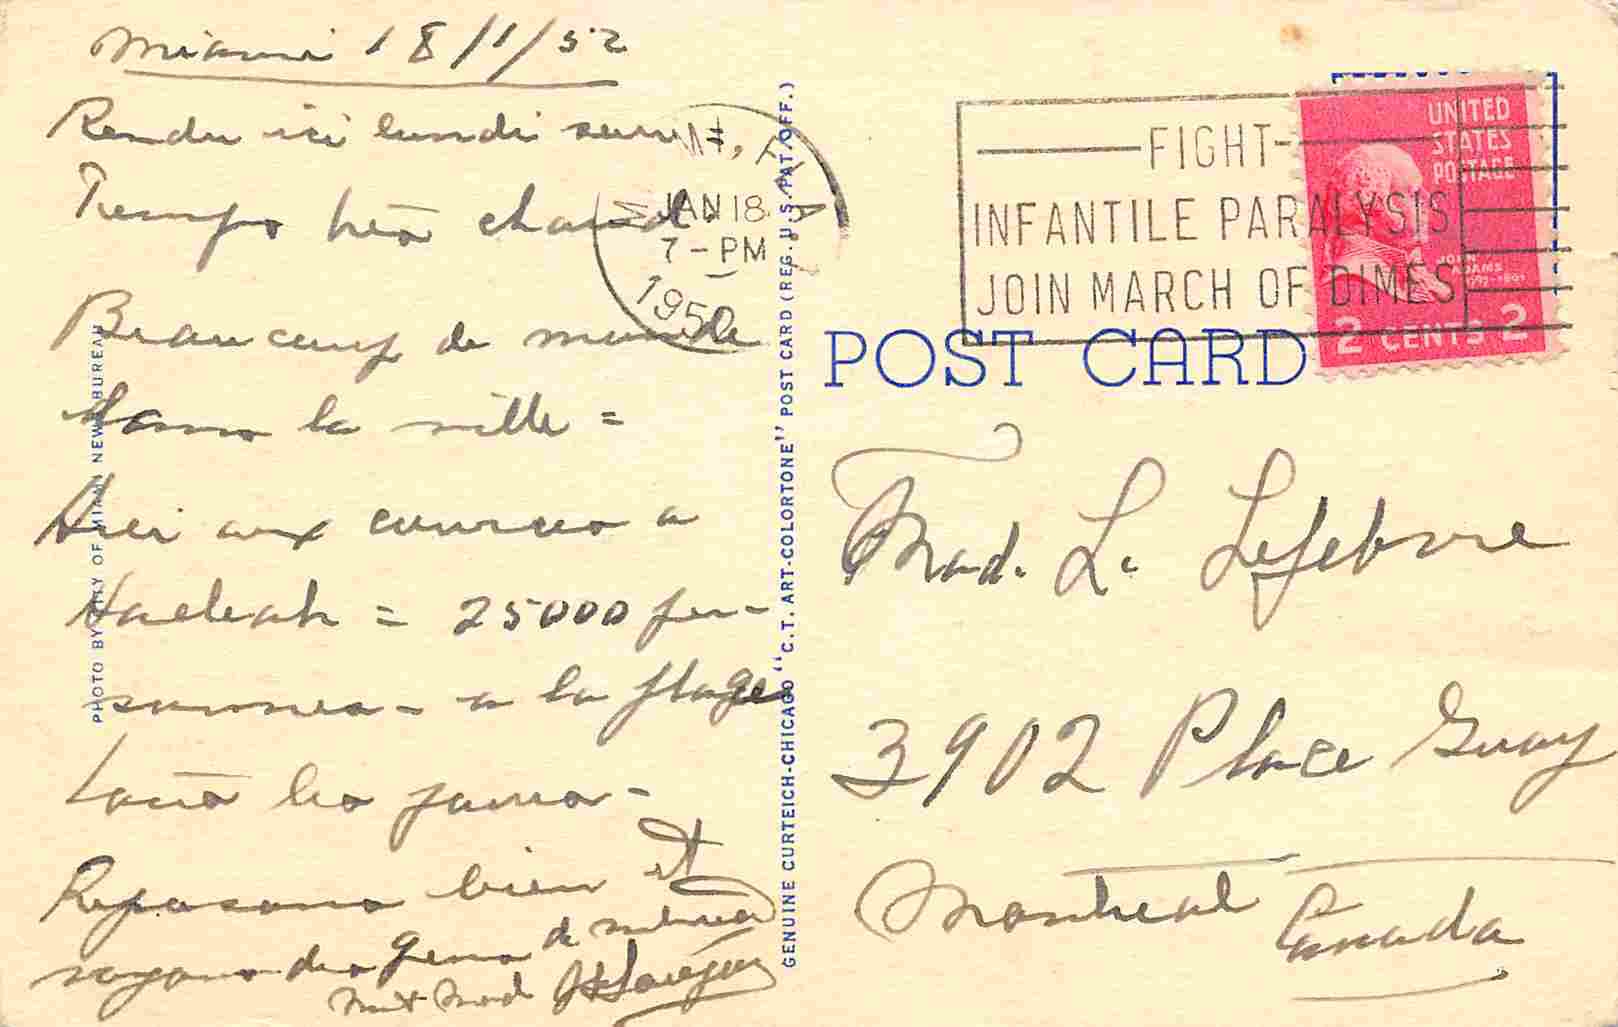 Miami 18/1/52
Rendu ici lundi
Temps très chaud.
Beaucoup de monde
dans la ville =
Hier aux courses a
Haeleah = 25000 per-
sonnes - a la plage
tous les jours -
Reposons bien et
voyons des gens de
MIAMI, FLA.
JAN 18
7-PM
1952
PHOTO BY CITY OF MIAMI NEWS BUREAU
GENUINE CURTEICH-CHICAGO "C.T. ART-COLORTONE" POST CARD (REG. U.S. PAT. OFF.)
FIGHT
INFANTILE PARALYSIS
JOIN MARCH OF DIMES
UNITED
STATES
POSTAGE
JOHN
ADAMS
2 CENTS 2
POST CARD
Mad. L. Lefebvre
3902 Place Guay
Montreal
Canada